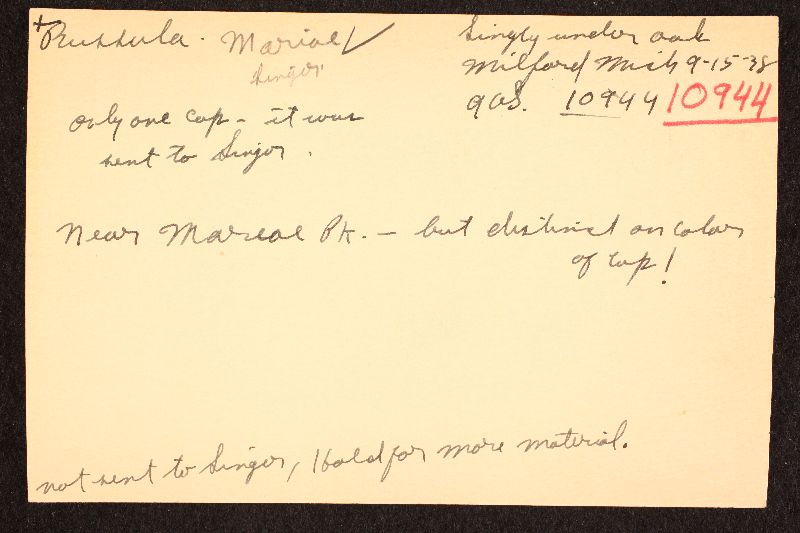 +Russula. Mariae ✓
Singer
Singly under oak
Milford Mich 9-15-38
10944 10944
only one cap - it was
sent to Singer.
Near Mareae Pk. - but distinct on color
of cap!
not sent to Singer, Hold for more material.